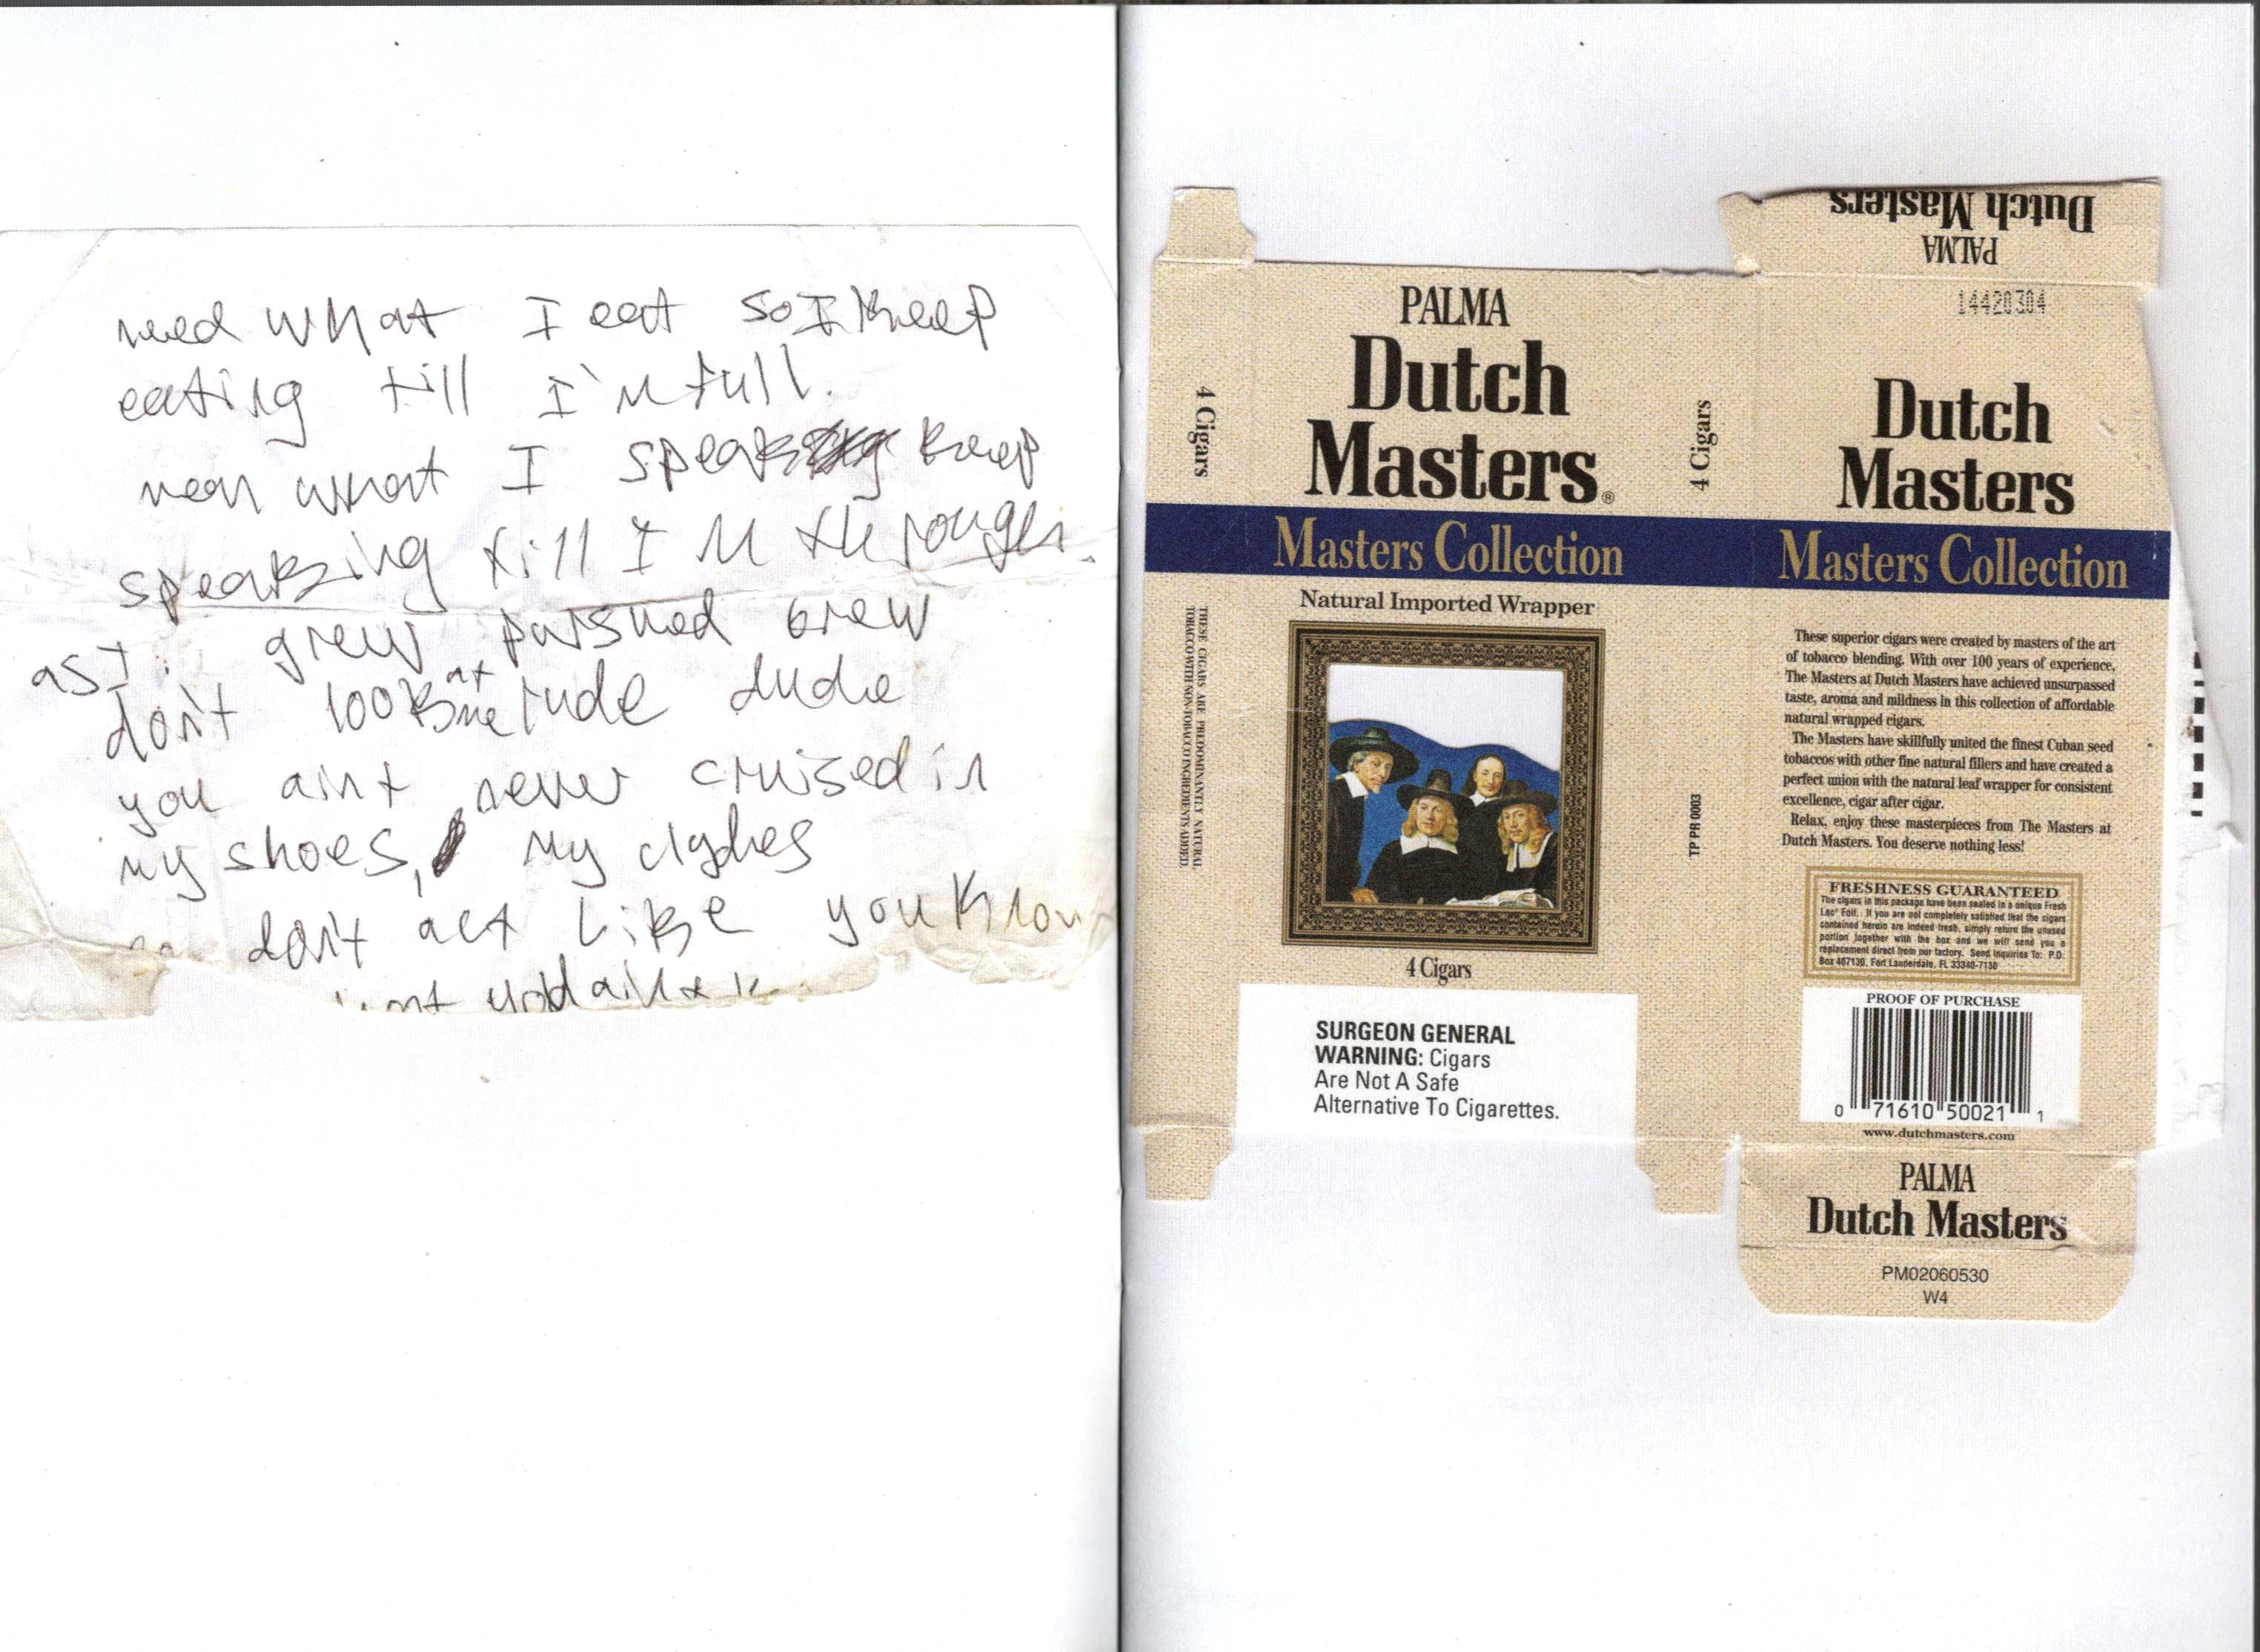 need what I eat so I keep
eating till I'm full.
mean what I speak keep
speaking till I'm through.
as I grew pursued brew
don't look at me rude dude
you aint never cruised in
my shoes, my clothes
don't act like you know
PALMA
Dutch
Masters®
Masters Collection
Natural Imported Wrapper
4 Cigars
SURGEON GENERAL
WARNING: Cigars
Are Not A Safe
Alternative To Cigarettes.
4 Cigars
THESE CIGARS ARE PREDOMINANTLY NATURAL
TOBACCO WITH NON-TOBACCO INGREDIENTS ADDED.
4 Cigars
TP PR 0003
Dutch Masters
PALMA
14420304
Dutch
Masters
Masters Collection
These superior cigars were created by masters of the art
of tobacco blending. With over 100 years of experience,
The Masters at Dutch Masters have achieved unsurpassed
taste, aroma and mildness in this collection of affordable
natural wrapped cigars.
The Masters have skillfully united the finest Cuban seed
tobaccos with other fine natural fillers and have created a
perfect union with the natural leaf wrapper for consistent
excellence, cigar after cigar.
Relax, enjoy these masterpieces from The Masters at
Dutch Masters. You deserve nothing less!
FRESHNESS GUARANTEED
The cigars in this package have been sealed in a unique Fresh
Loc® Foil. If you are not completely satisfied that the cigars
contained herein are indeed fresh, simply return the unused
portion together with the box and we will send you a
replacement direct from our factory. Send Inquiries To: P.O.
Box 407130, Fort Lauderdale, FL 33340-7130
PROOF OF PURCHASE
0 71610 50021 1
www.dutchmasters.com
PALMA
Dutch Masters
PM02060530
W4